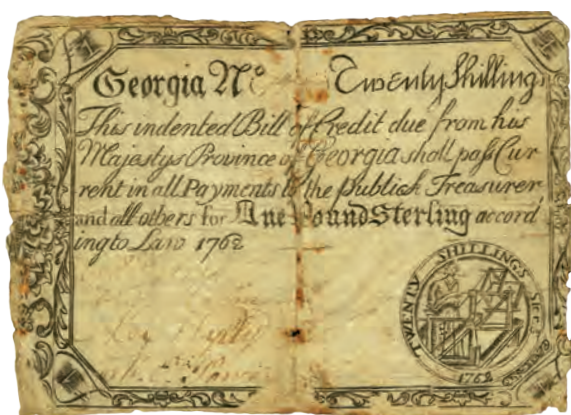 Georgia No Twenty Shilling
This indented Bill of Credit due from his
Majestys Province of Georgia shall pass Cur
rent in all Payments the Publick Treasurer
and all others for One Pound Sterling accord
ing to Law 1762
TWENTY SHILLINGS
1762